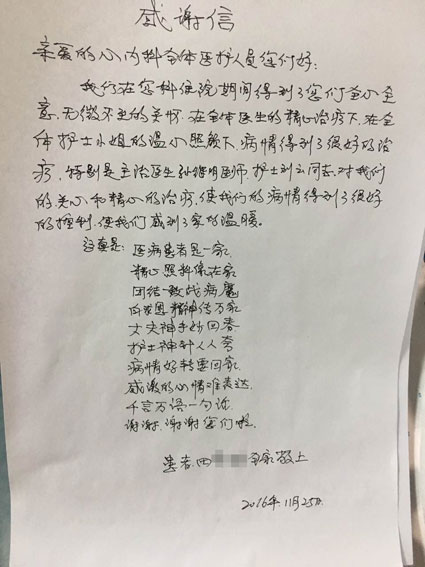 感谢信
亲爱的心内科全体医护人员您们好:
我们在您科住院期间得到了您们全心全
意、无微不至的关怀。在全体医生的精心治疗下、在全
体护士小姐的温心照顾下、病情得到了很好的治
疗、特别是主治医生孙继明医师、护士刘云同志、对我们
的关心和精心的治疗、使我们的病情得到了很好
的控制、使我们感到了家的温暖。
这真是: 医病患者是一家
精心照料像在家
团结一致战病魔
白求恩精神传万家
丈夫神手妙回春
护士神针人人夸
病情好转要回家
感激的心情难表达
千言万语一句话
谢谢、谢谢您们啦
患者: 全家敬上
2016年11月25日